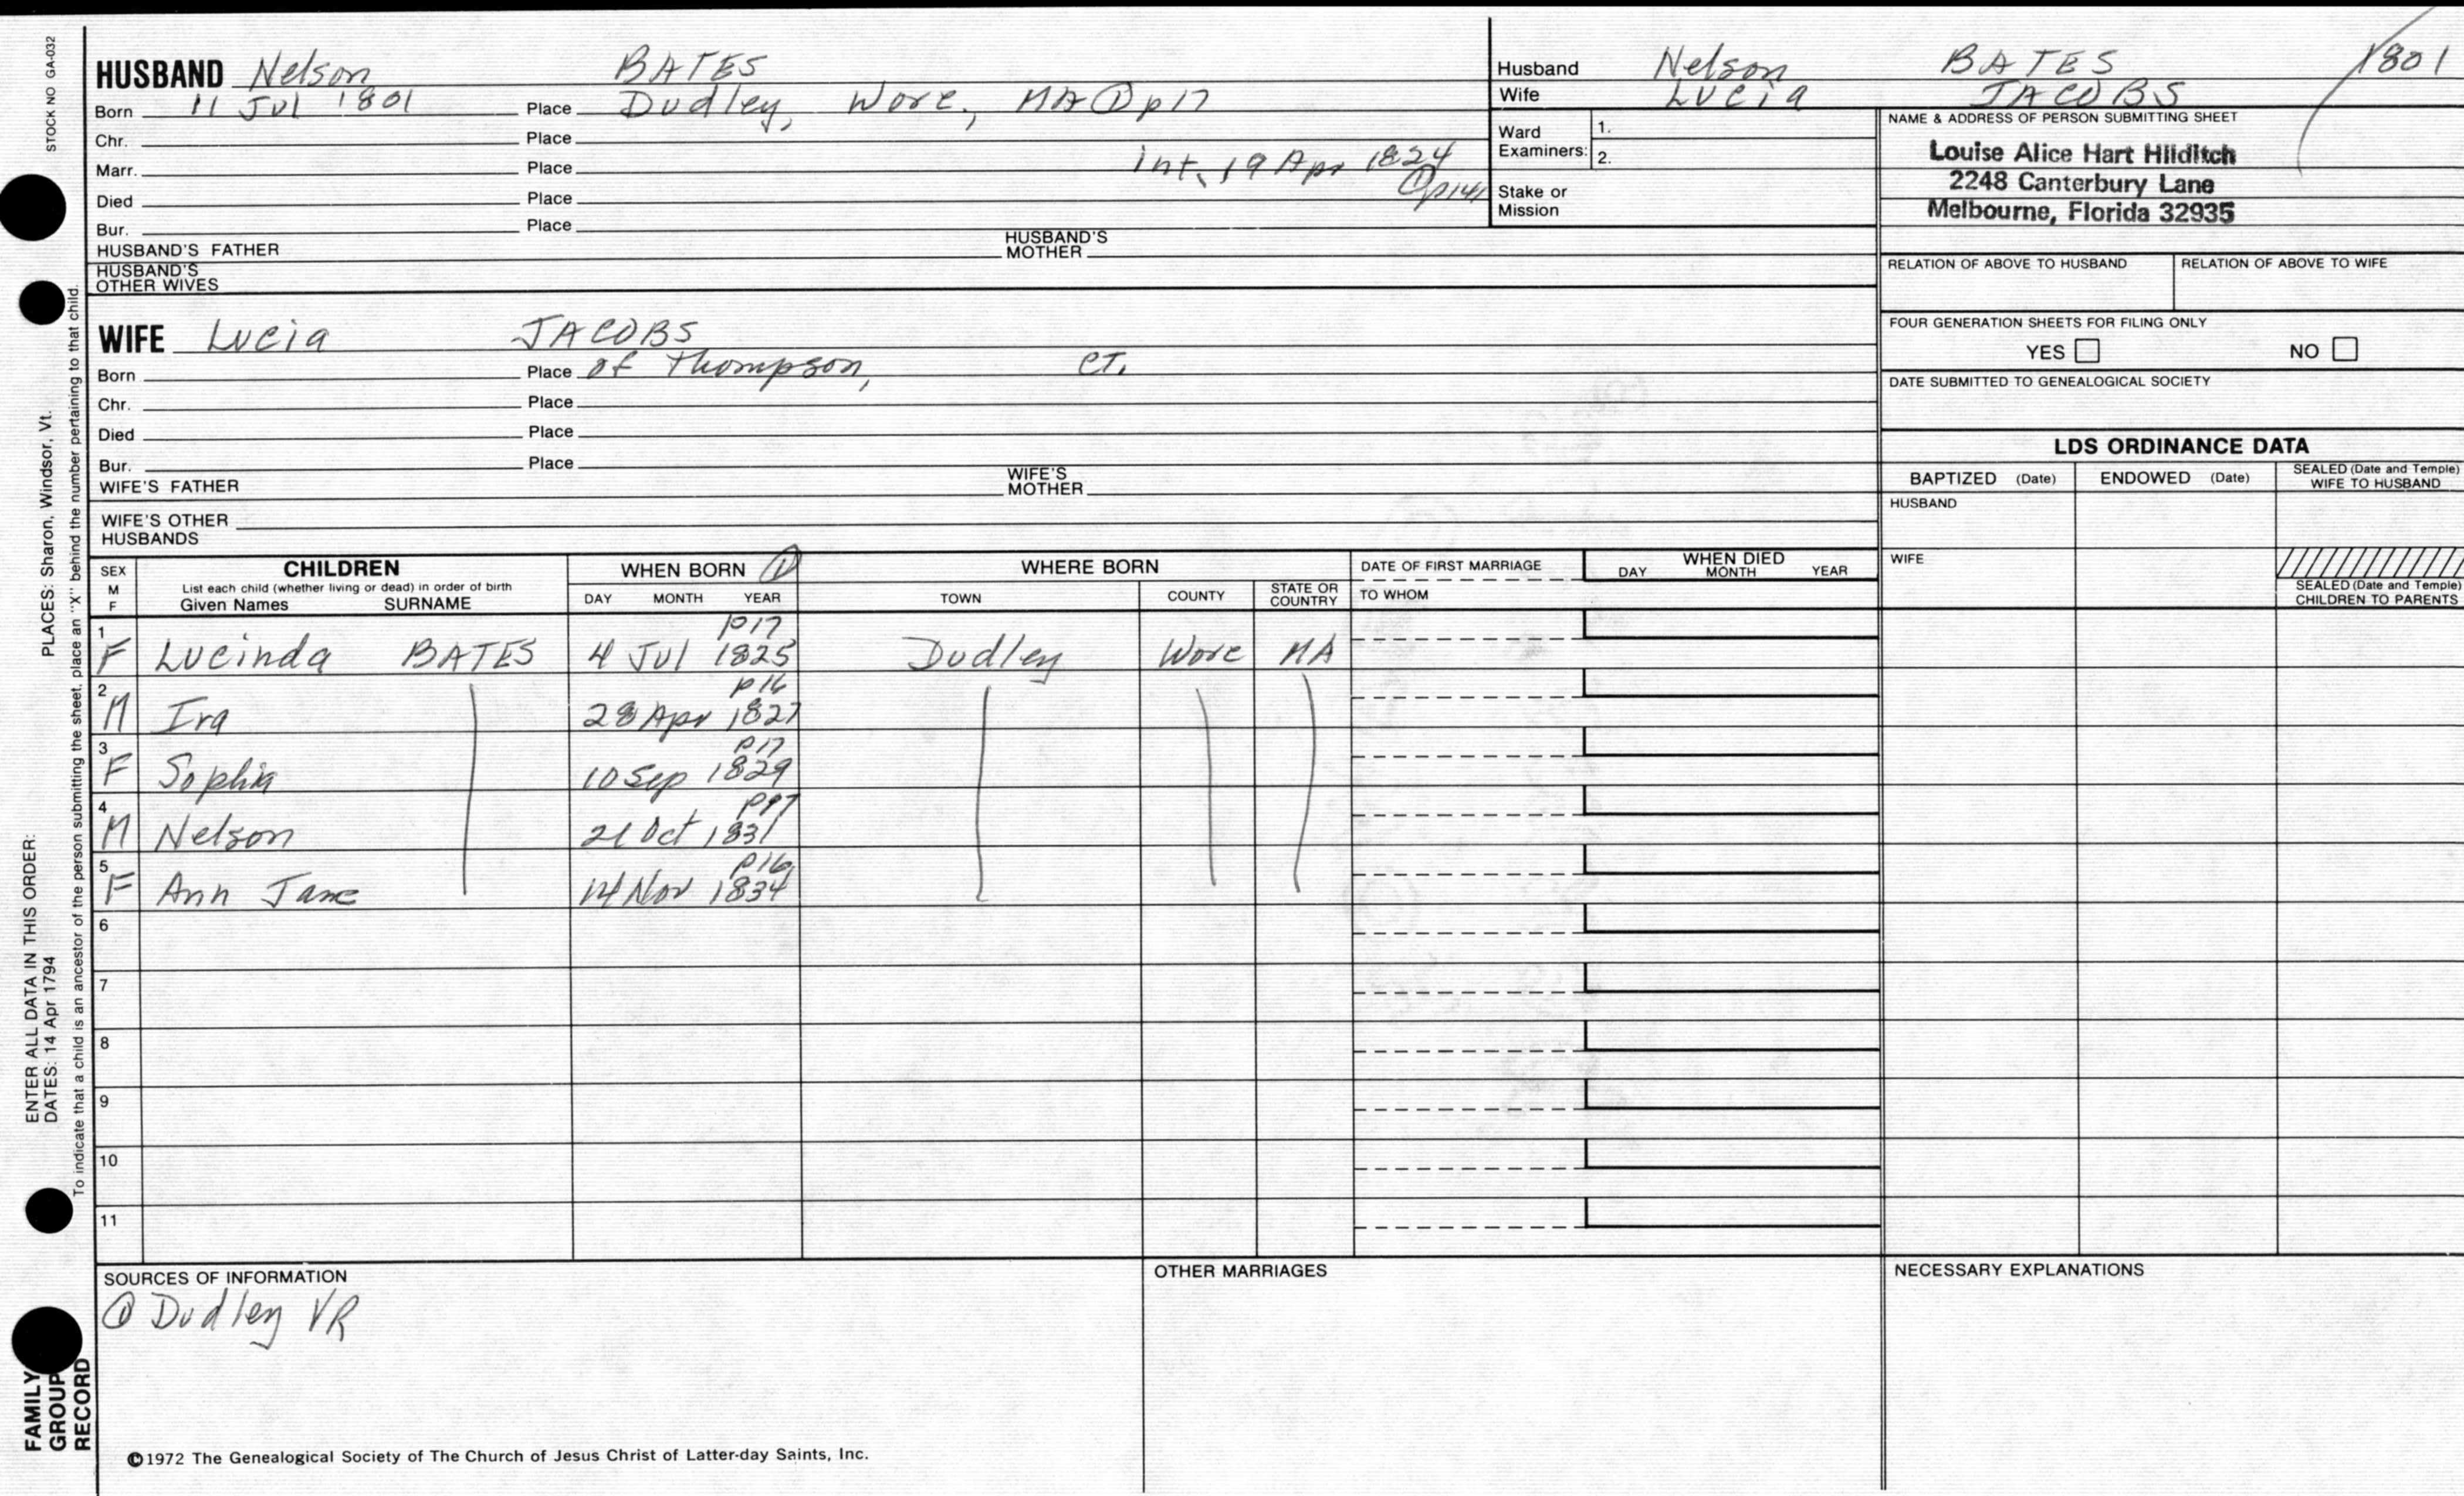 STOCK NO GA-032
HUSBAND Nelson BATES
Born 11 Jul 1801 Place Dudley, Worc, MA ① p17
Chr. Place
Marr. Place int. 19 Apr 1824
① p141
Died Place
Bur. Place
HUSBAND'S FATHER HUSBAND'S MOTHER
HUSBAND'S OTHER WIVES
Husband Nelson BATES 1801
Wife Lucia JACOBS
Ward Examiners: 1.
2.
Stake or Mission
NAME & ADDRESS OF PERSON SUBMITTING SHEET
Louise Alice Hart Hilditch
2248 Canterbury Lane
Melbourne, Florida 32935
RELATION OF ABOVE TO HUSBAND RELATION OF ABOVE TO WIFE
FOUR GENERATION SHEETS FOR FILING ONLY
YES NO
DATE SUBMITTED TO GENEALOGICAL SOCIETY
WIFE Lucia JACOBS
Born Place of Thompson, CT.
Chr. Place
Died Place
Bur. Place
WIFE'S FATHER WIFE'S MOTHER
WIFE'S OTHER HUSBANDS
LDS ORDINANCE DATA
BAPTIZED (Date) ENDOWED (Date) SEALED (Date and Temple) WIFE TO HUSBAND
HUSBAND
WIFE
SEALED (Date and Temple) CHILDREN TO PARENTS
SEX M F
CHILDREN
List each child (whether living or dead) in order of birth
Given Names SURNAME
WHEN BORN ①
DAY MONTH YEAR
WHERE BORN
TOWN COUNTY STATE OR COUNTRY
DATE OF FIRST MARRIAGE
TO WHOM
WHEN DIED
DAY MONTH YEAR
p17
1 F Lucinda BATES 4 Jul 1825 Dudley Worc MA
p16
2 M Ira 28 Apr 1827
p17
3 F Sophia 10 Sep 1829
4 M Nelson 21 Oct 1831
p16
5 F Ann Jane 14 Nov 1834
6
7
8
9
10
11
SOURCES OF INFORMATION
① Dudley VR
OTHER MARRIAGES
NECESSARY EXPLANATIONS
©1972 The Genealogical Society of The Church of Jesus Christ of Latter-day Saints, Inc.
ENTER ALL DATA IN THIS ORDER:
DATES: 14 Apr 1794 PLACES: Sharon, Windsor, Vt.
To indicate that a child is an ancestor of the person submitting the sheet, place an "X" behind the number pertaining to that child.
FAMILY
GROUP
RECORD